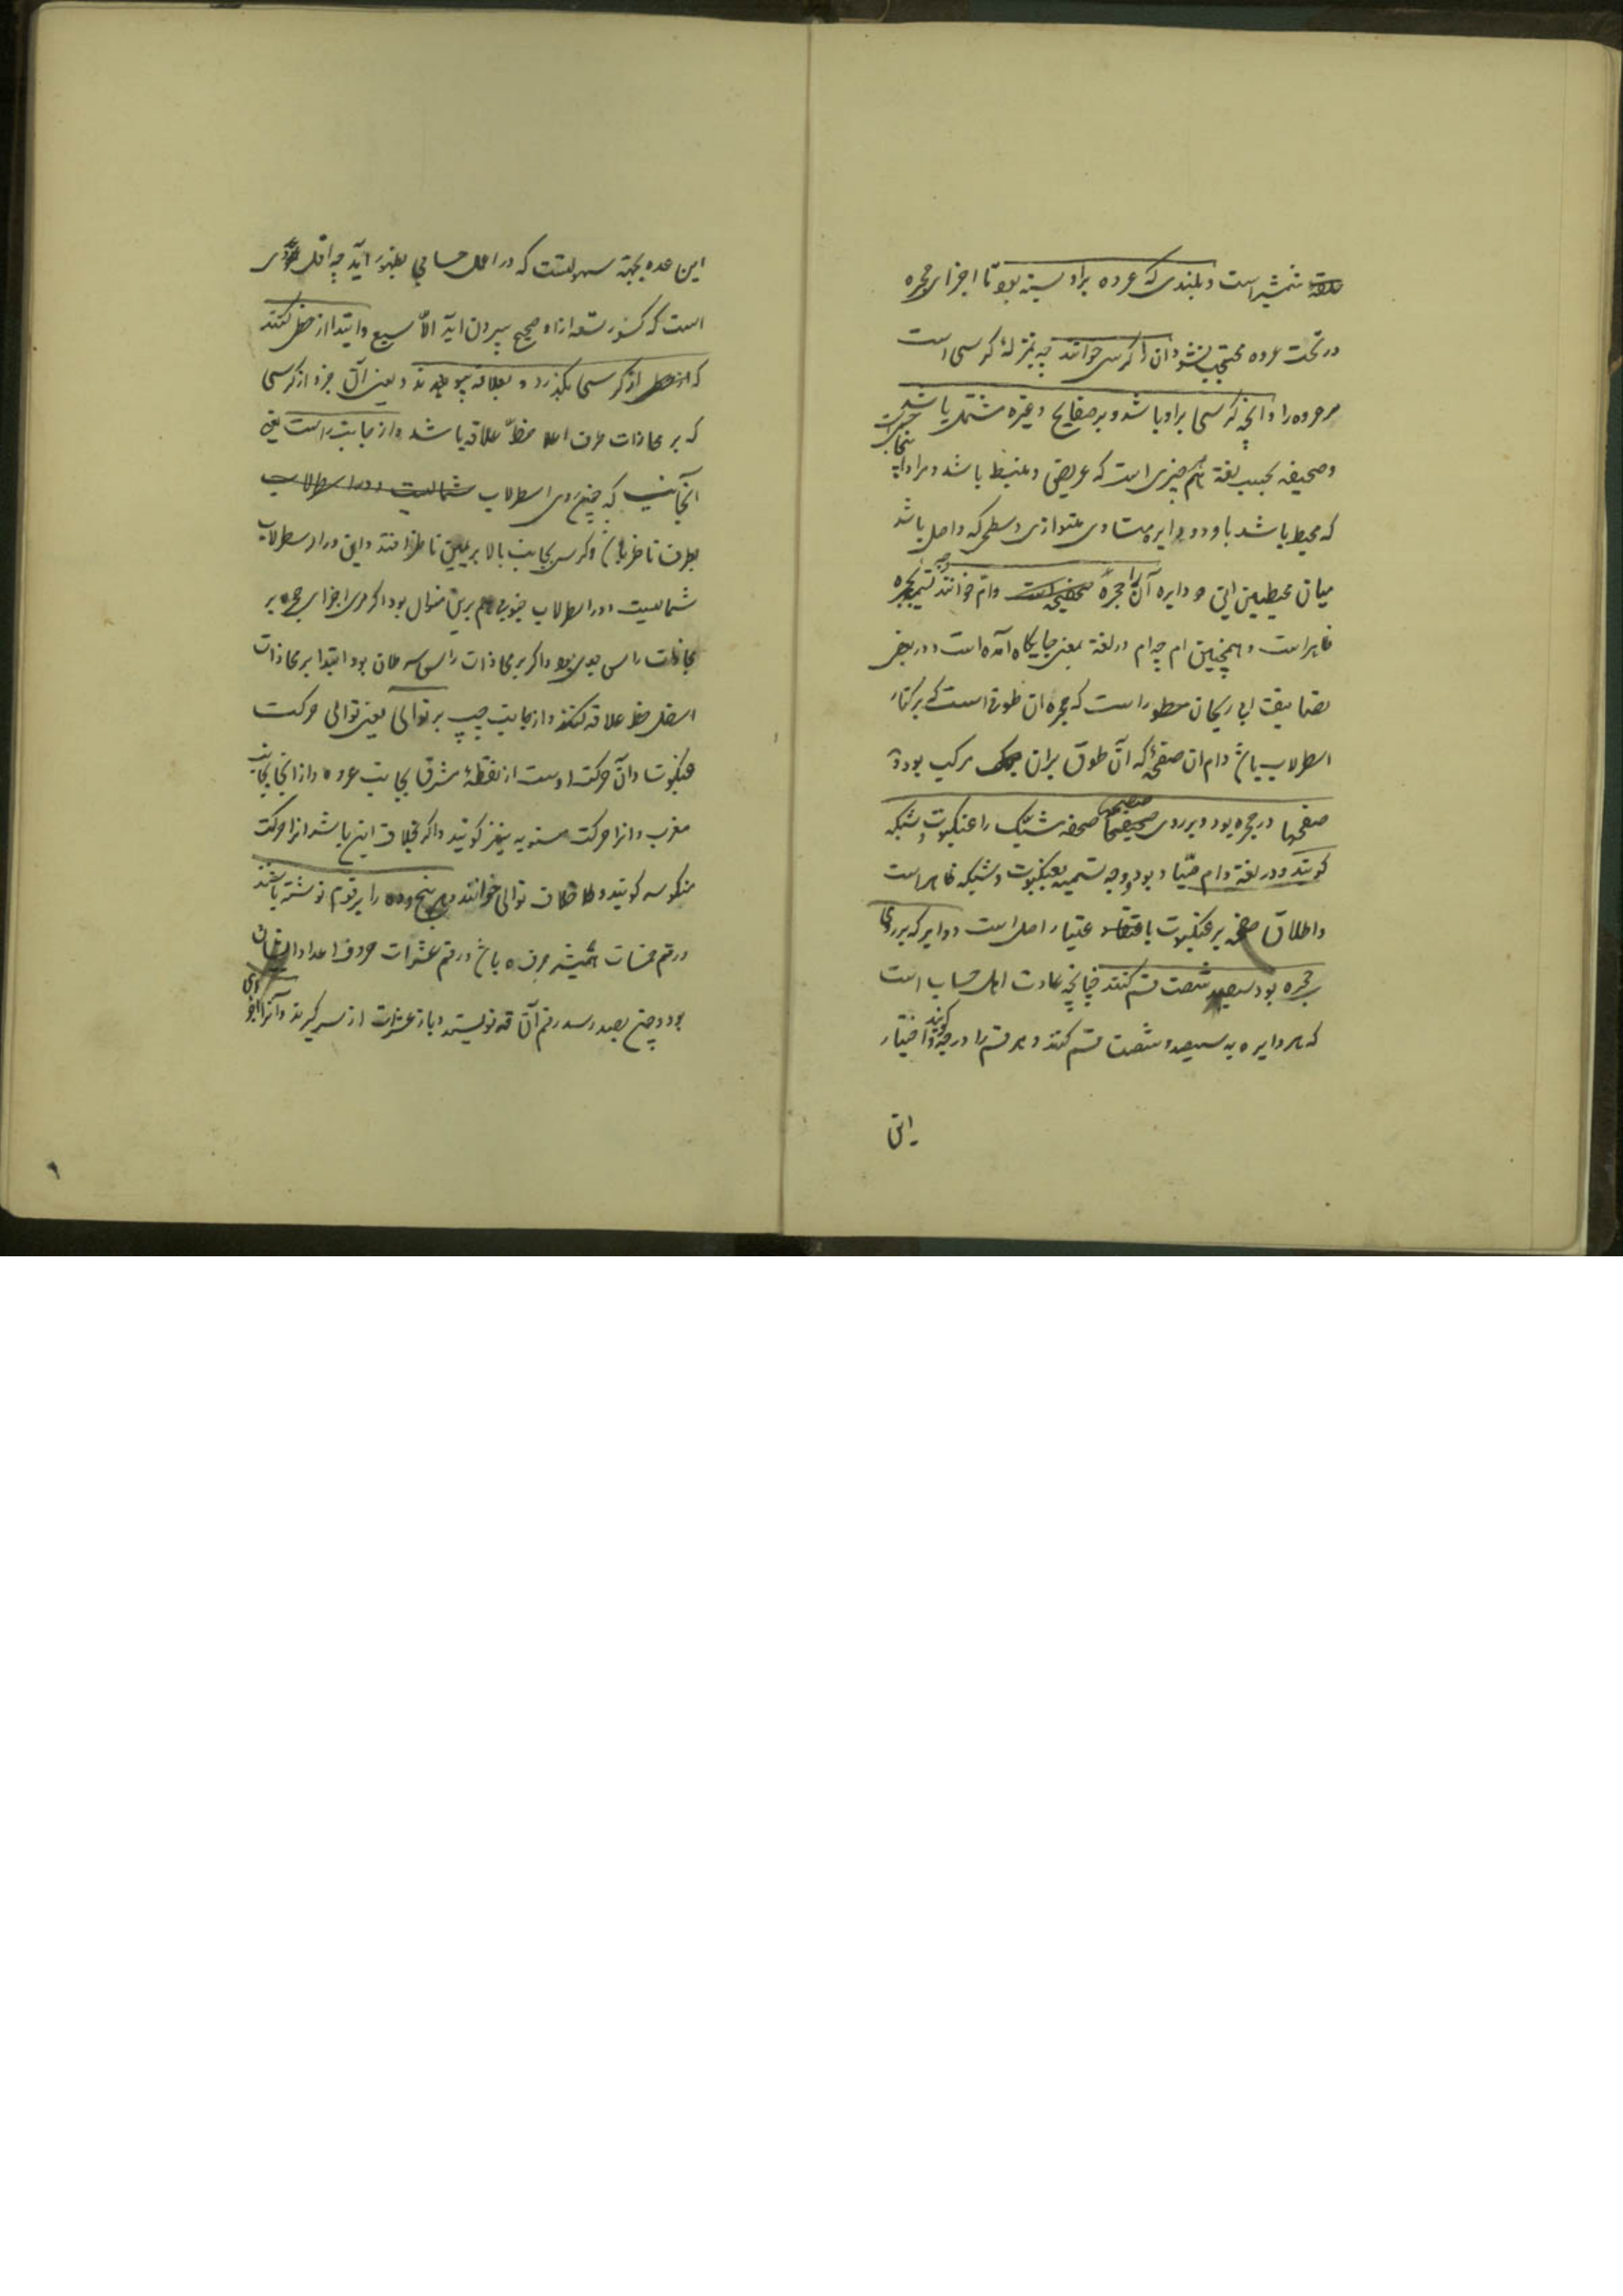 شمشیر است و بلندی که عروه براو بسته بود تا اجزای حجره
در تحت عروه محتجب نشود آن را کرسی خوانند چه بمنزلهٔ کرسی است
مر عروه را و آنچه کرسی براو باشد و بر صفایح و غیره مشتمل باشد
و صحیفه بحسب لغة هم چیزی است که عریض و منبسط باشد و مراد
که محیط باشد باو دو دایره متساوی متوازی و سطحی که واصل باشد
میان محیطین این دو دایره آن را حجره و ام خوانند تسمیه بحجره
ظاهر است و همچنین ام چه ام در لغة بمعنی جایگاه آمده است و در بعض
تصانیف ابی ریحان مسطور است که حجره آن طوق است که بر کنار
اسطرلاب باشد و ام آن صفحهٔ که آن طوق بران مرکب بود و
صفحها در حجره بود و بر روی صحیفه مشبّک را عنکبوت و شبکه
گویند و در لغة دام صیّاد بود و وجه تسمیه بعنکبوت و شبکه ظاهر است
و اطلاق صفحه بر عنکبوت باعتبار اصل است و دوایر که بر روی
حجره بود بسیصد شصت قسم کنند چنانچه عادت اهل حساب است
که هر دایره به سیصد و شصت قسم کنند و هر قسم را درجه گویند و اختیار
این
این عدد بجهة سهولتست که در اعمال حسابی بظهور آید چه اقل عددی
است که کسور تسعه ازا و صحیح بیرون آید الاّ سبع و ابتدا از خط کنند
که از کرسی بگذرد و بعلاقه پیوندد یعنی آن جزو از کرسی
که بر محاذات طرف اعلا خطّ علاقه باشد و از جانب راست یعنی
آنجانب که چون روی اسطرلاب شمالیست و در اسطرلاب
بطرف ناظر باشد و کرسی بجانب بالا بر یمین ناظر افتد و این در اسطرلاب
شمالیست و در اسطرلاب جنوبی هم برین منوال بود اگر مری اجزای حجره بر
محاذات راس جدی بود و اگر بر محاذات راس سرطان بود ابتدا بر محاذات
اسفل خط علاقه کنند و از جانب چپ بر توالی یعنی توالی حرکت
عنکبوت و آن حرکت اوست از نقطهٔ مشرق بجانب عروه و از آنجا بجانب
مغرب و انرا حرکت مستویه نیز گویند و اگر بخلاف این باشد انرا حرکت
منکوسه گویند و خلاف توالی خوانند و هر پنج و ده را برقوم نوشته باشند
و رقم خمسات همیشه حرف ه باشد و رقم عشرات حروف اعداد ایشان
بود و چون بصد رسد رقم آن قه نویسند و باز عشرات از سر گیرند و آنرا
۱